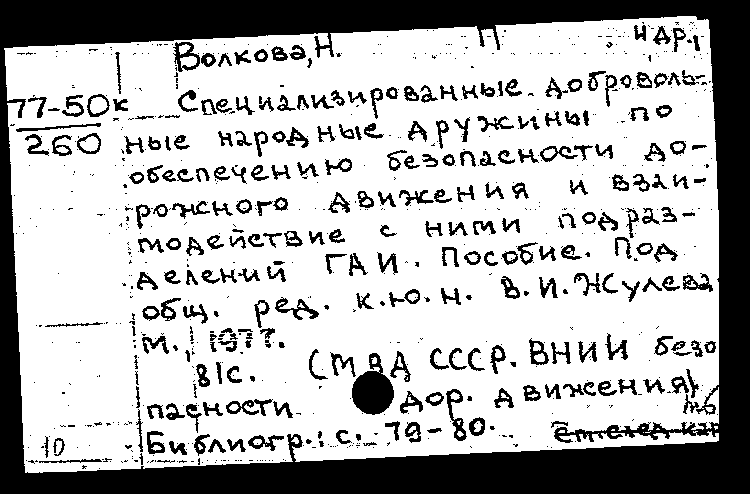 Волкова, Н. П и др.,
77-50к Специализированные доброволь-
260 ные народные дружины по
обеспечению безопасности до-
рожного движения и взаи-
модействие с ними подраз-
делений ГАИ. Пособие. Под
общ. ред. к.ю.н. В.И. Жулева
М., 1977.
81с. (МВД СССР. ВНИИ безо
пасности дор. движения)
Библиогр.: с. 79-80.
10 См. след. кар